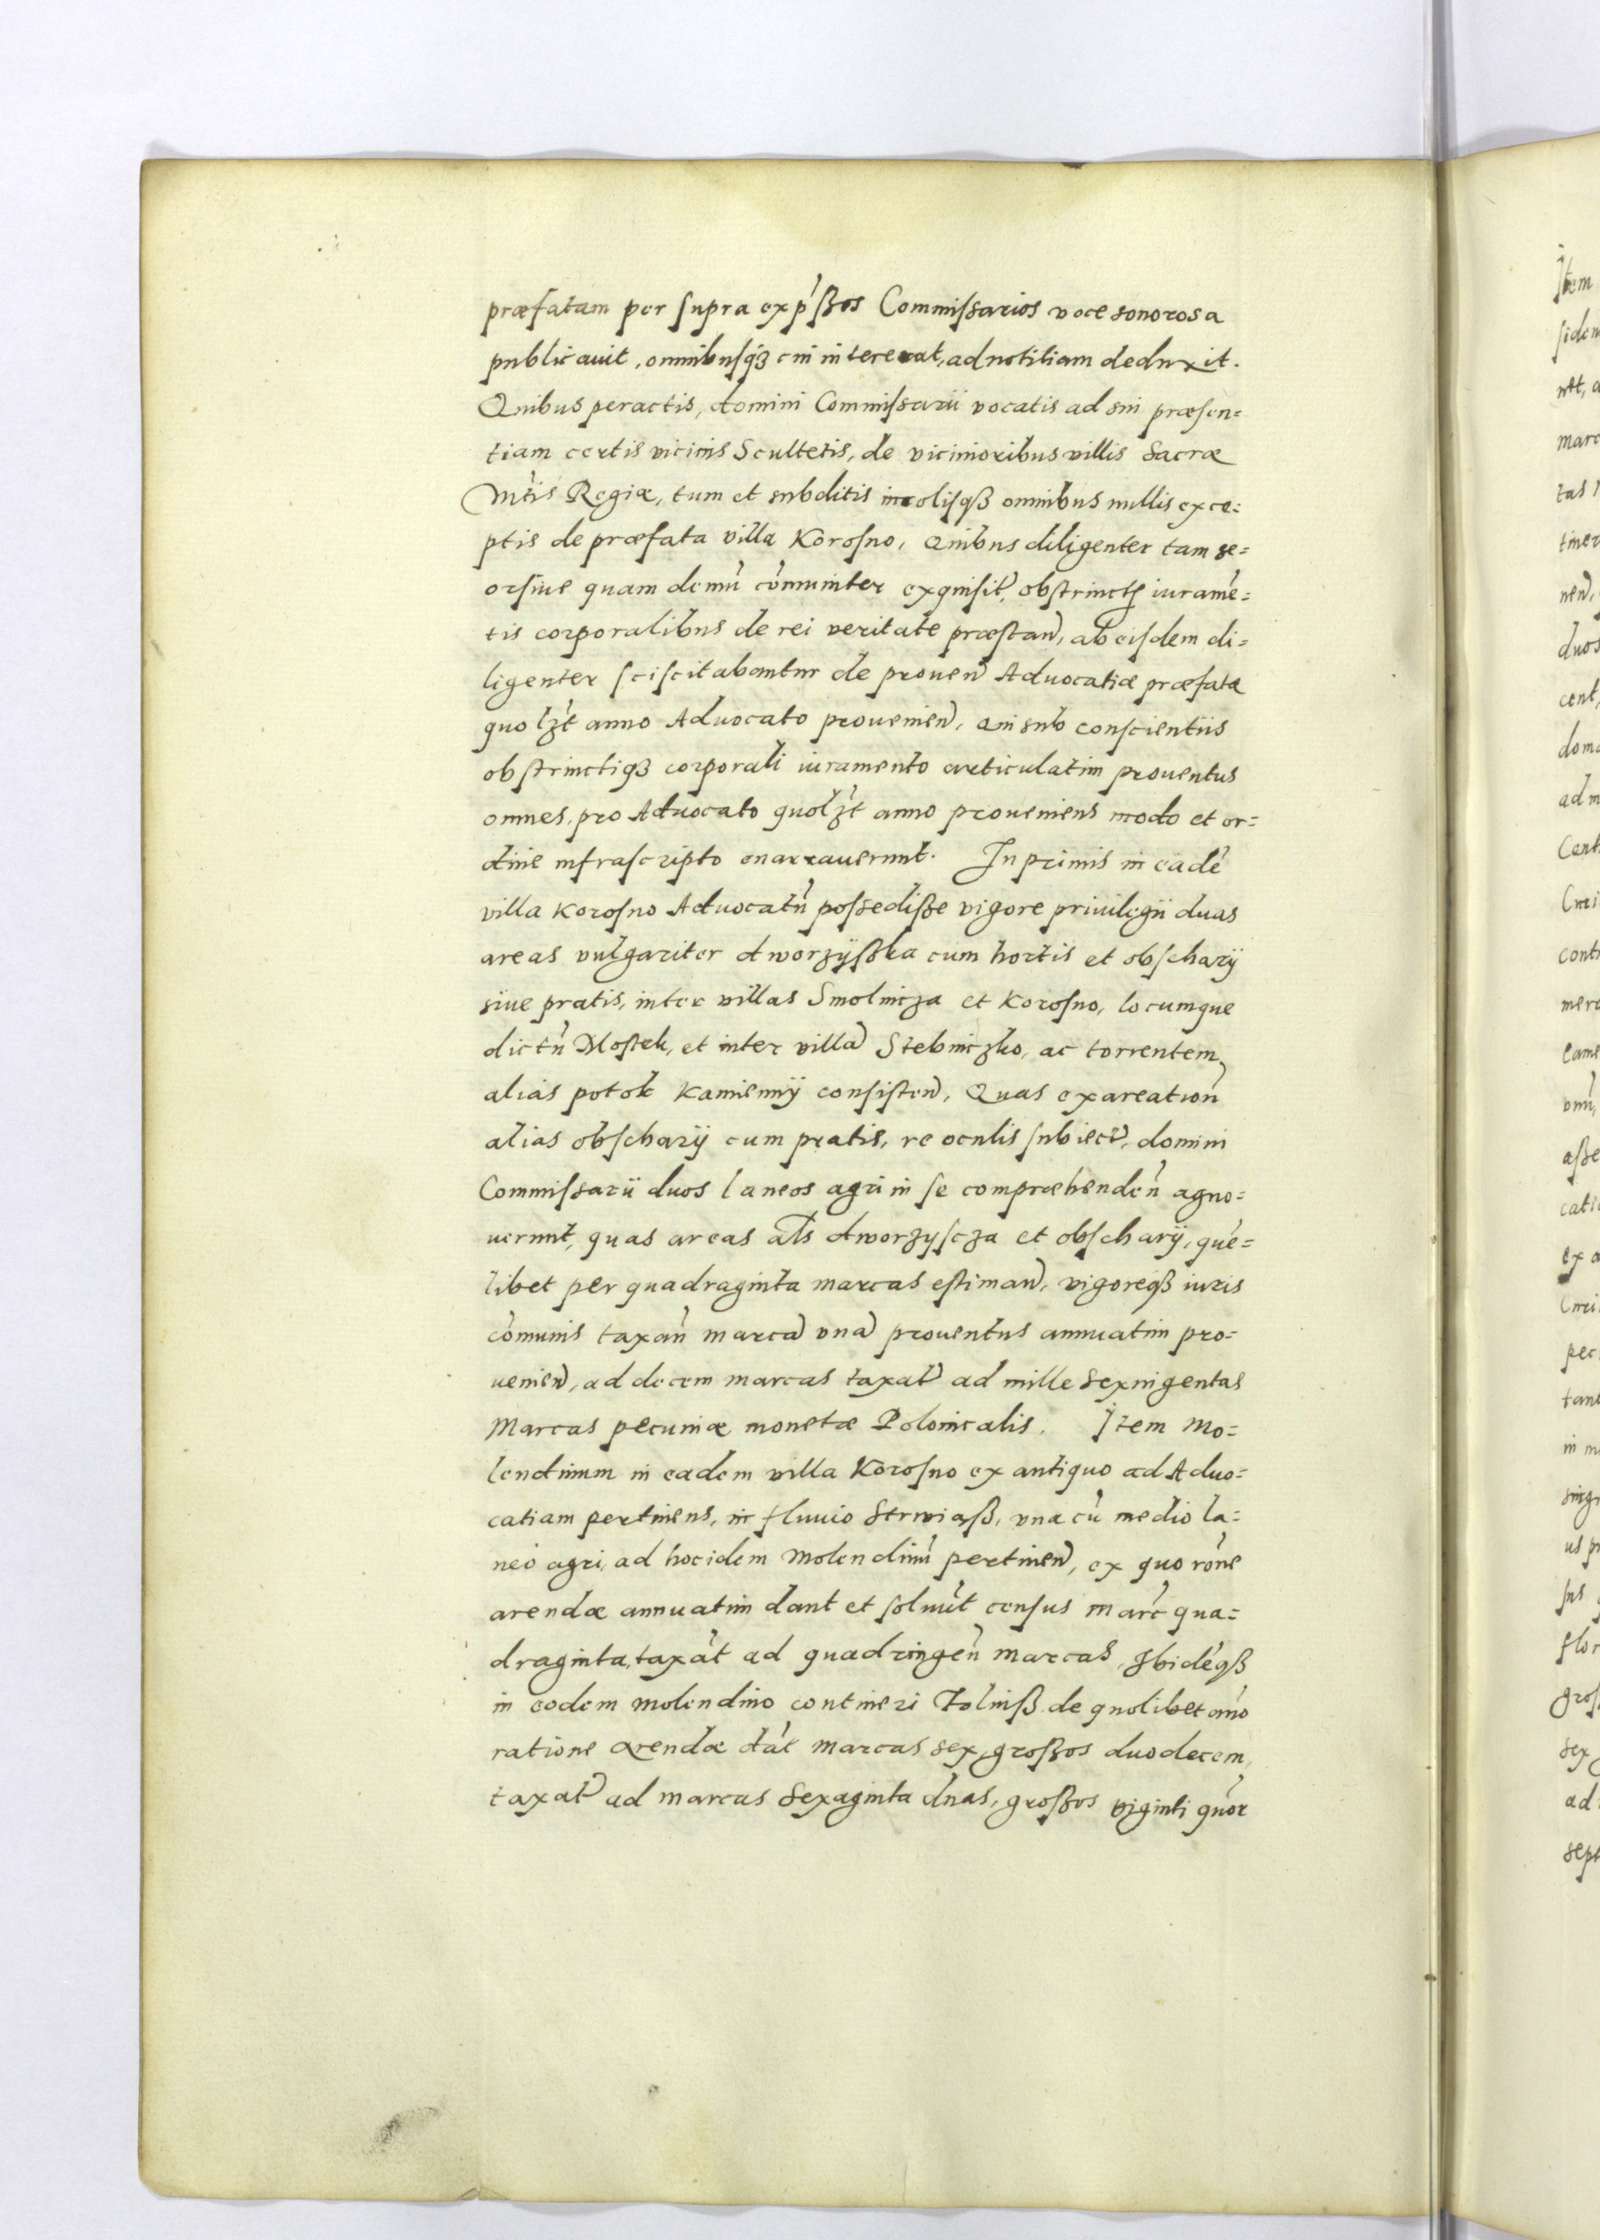 præfatam per supra exp'ssos Commissarios voce sonorosa
publicavit, omnibusq3 cui intererat, ad notitiam deduxit.
Quibus peractis, domini Commissarii vocatis ad sui præsen=
tiam certis vicinis Scultetis, de vicinioribus villis Sacræ
Mtis Regiæ, tum et subditis incolisq3 omnibus nullis exce=
ptis de præfata villa Korosno, Quibus diligenter tam se=
orsive quam demū cōmuniter exquisit, obstrinct iuramē=
tis corporalibus de rei veritate præstan, ab eisdem di=
ligenter sciscitabantur de proven Advocatiæ præfatæ
quolzt anno Advocato provenien, Qui sub conscientiis
obstrinctiq3 corporali iuramento articulatim proventus
omnes, pro Advocato quolzt anno proveniens modo et or=
dine infrascripto enarraverunt. Inprimis in eadē
villa Korosno Advocatū possedisse vigore privilegii duas
areas vulgariter dworzÿska cum hortis et obscharÿ
sive pratis, inter villas Smolnicza et Korosno, locumque
dictū Mostek, et inter villā Stebniczko, ac torrentem
alias potok Kamiennÿ consisten, Quas exareation
alias obscharÿ cum pratis, re oculis subiect, domini
Commissarii duos laneos agri in se compræhenden agno=
verunt, quas areas als dworzyscza et obscharÿ, quē=
libet per quadraginta marcas estiman, vigoreq3 iuris
cōmunis taxan marcā vnā proventus annuatim pro=
venien, ad decem marcas taxat ad mille sexingentas
Marcas pecuniæ monetæ Polonicalis. Item Mo=
lendinum in eadem villa Korosno ex antiquo ad Advo=
catiam pertinens, in fluvio Strwiaß, vna cū medio la=
neo agri, ad hocidem Molendinū pertinen, ex quo rōne
arendæ annuatim dant et solvūt census marc qua=
draginta, taxāt ad quadringen marcas, Ibidēq3
in eodem molendino contineri Folniß de quolibet anno
ratione Arendæ dāt marcas sex, großos duodecem,
taxat ad marcas sexaginta duas, großos viginti quor
Item